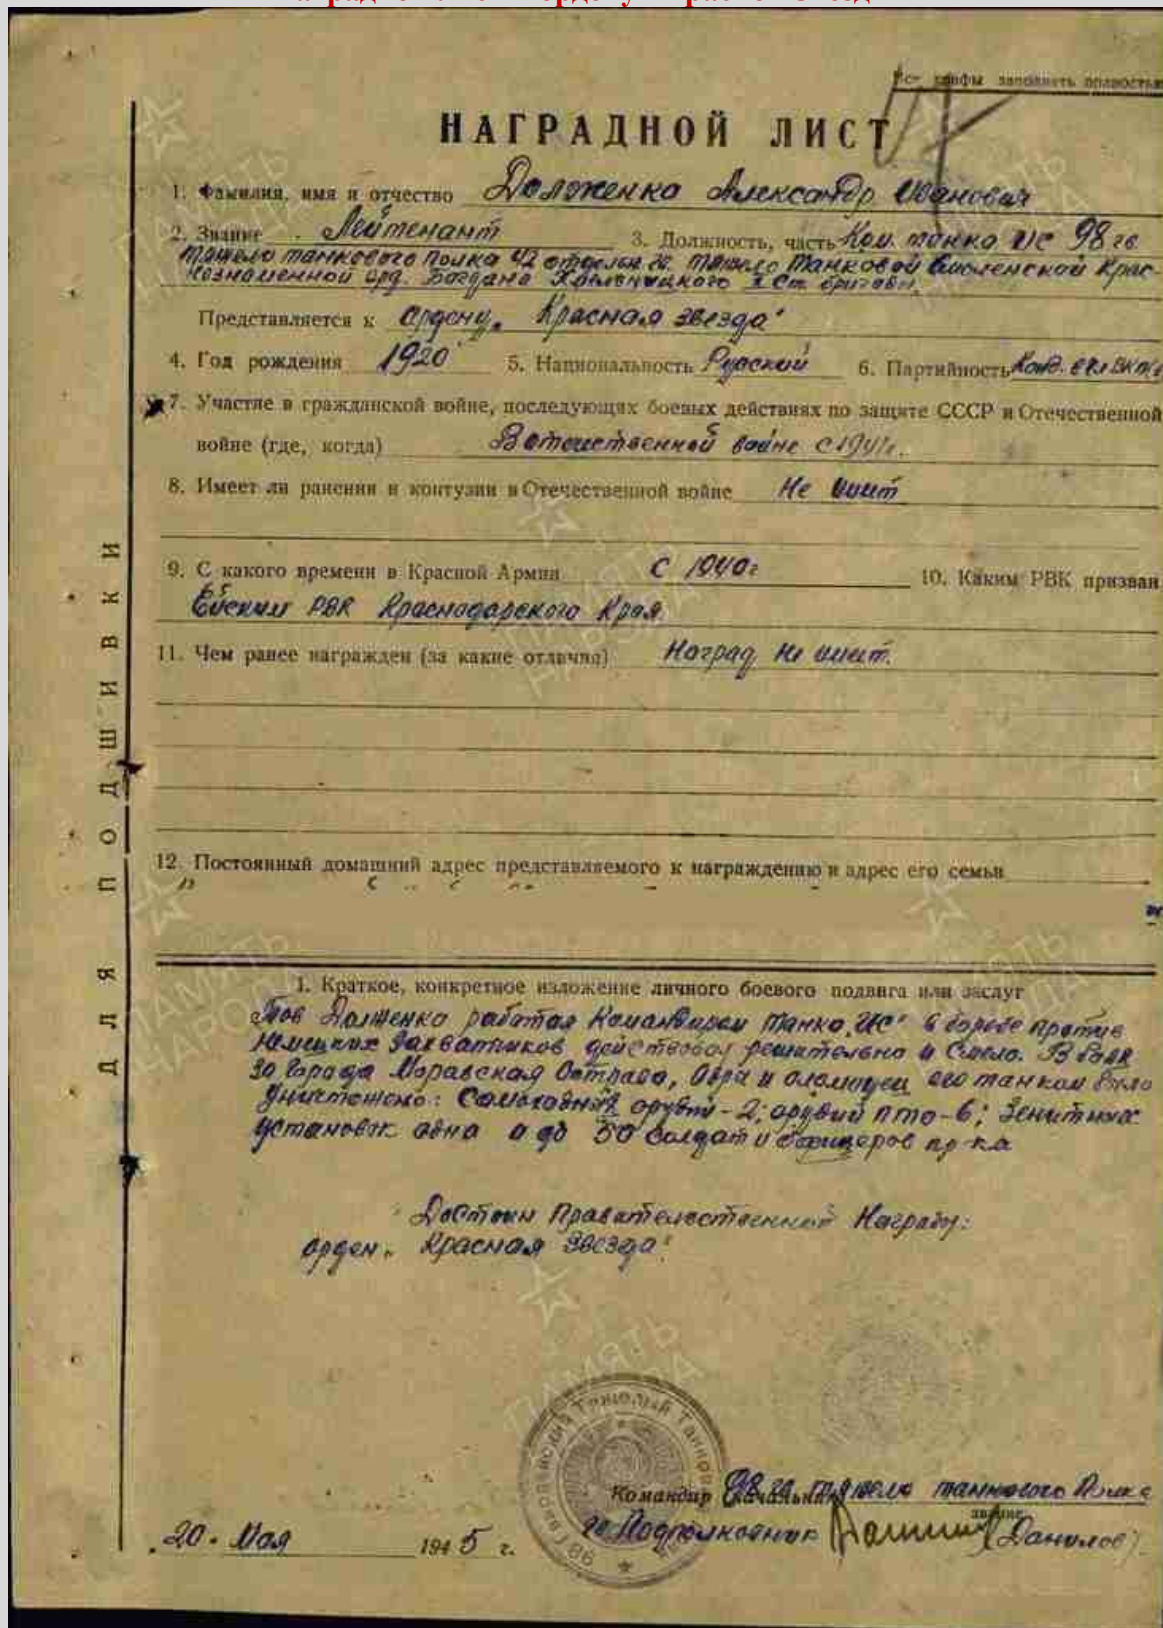 графы заполнять полностью
НАГРАДНОЙ ЛИСТ
1. Фамилия, имя и отчество Долженко Александр Иванович
2. Звание Лейтенант 3. Должность, часть Ком. танка ИС 98 гв.
тяжело танкового полка 42 отдельн. гв. тяжело танковой Смоленской Крас-
нознаменной орд. Богдана Хмельницкого 2 ст. бригады.
Представляется к ордену „Красная звезда"
4. Год рождения 1920 5. Национальность Русский 6. Партийность Канд. в чл ВКП/б
7. Участие в гражданской войне, последующих боевых действиях по защите СССР и Отечественной
войне (где, когда) В отечественной войне с 1941г.
8. Имеет ли ранения и контузии в Отечественной войне Не имеет
9. С какого времени в Красной Армии С 1940г 10. Каким РВК призван
РВК Краснодарского Края.
11. Чем ранее награжден (за какие отличия) Наград не имеет.
12. Постоянный домашний адрес представляемого к награждению и адрес его семьи
1. Краткое, конкретное изложение личного боевого подвига или заслуг
Тов Долженко работая Командиром танка „ИС" в борьбе против
немецких захватчиков действовал решительно и смело. В боях
за города Моравская Острава, и Оломоуец его танком было
уничтожено: Самоходных орудий-2; орудий пто-6; зенитных
установок одна и до 50 солдат и офицеров пр-ка
Достоин Правительственной Награды:
орден „Красная Звезда"
Командир 98 гв. тяжело танкового Полка
звание
гв Подполковник (Данилов)
20. Мая 1945 г.
ДЛЯ ПОДШИВКИ
ПАМЯТЬ НАРОДА